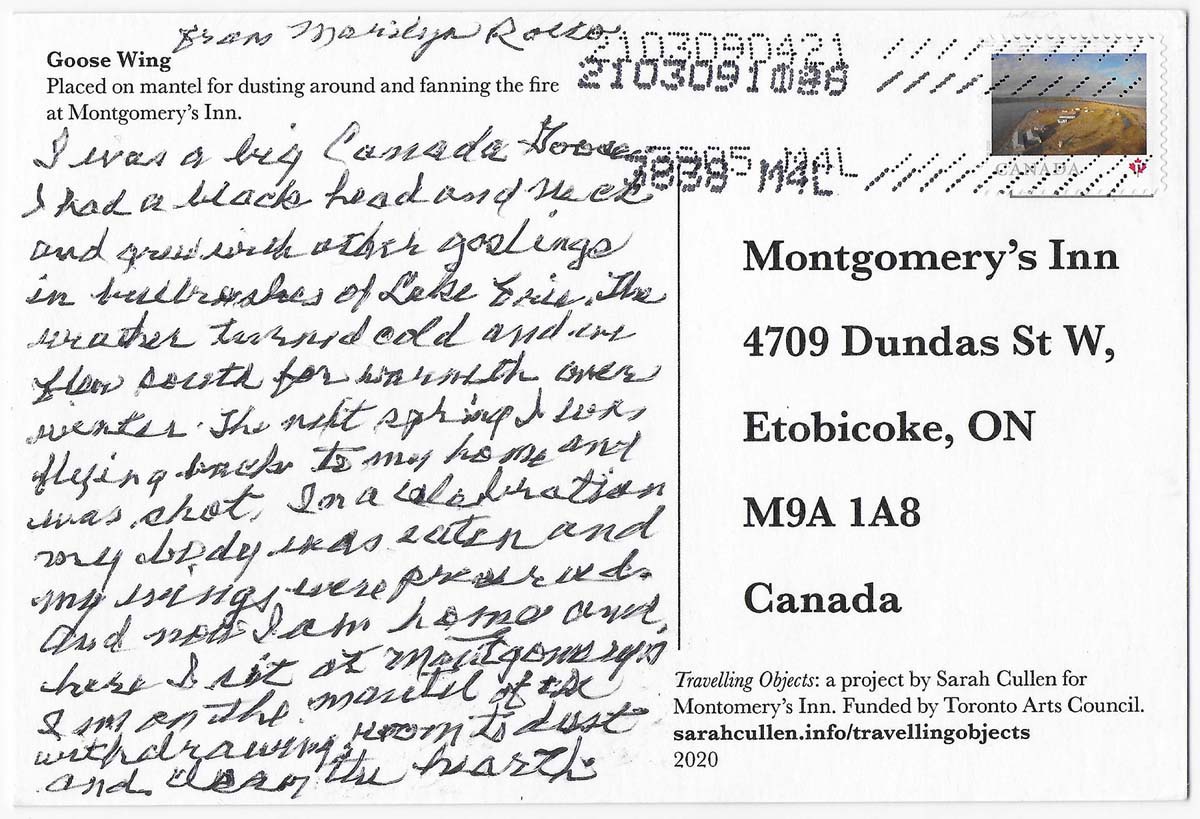 from Marilyn Rocco
Goose Wing
Placed on mantel for dusting around and fanning the fire
at Montgomery's Inn.
2103090421
2103091036
3838 M4L
CANADA
P
I was a big Canada Goose
I had a black head and neck
and grew with other goslings
in bullrushes of Lake Erie. The
weather turned cold and we
flew south for warmth over
winter. The next spring I was
flying back to my home and
was shot. In a celebration
my body was eaten and
my wings were preserved.
And now I am home and
here I sit at Montgomery's
I'm on the mantel of the
withdrawing room to dust
and clean the hearth
Montgomery's Inn
4709 Dundas St W,
Etobicoke, ON
M9A 1A8
Canada
Travelling Objects: a project by Sarah Cullen for
Montomery's Inn. Funded by Toronto Arts Council.
sarahcullen.info/travellingobjects
2020